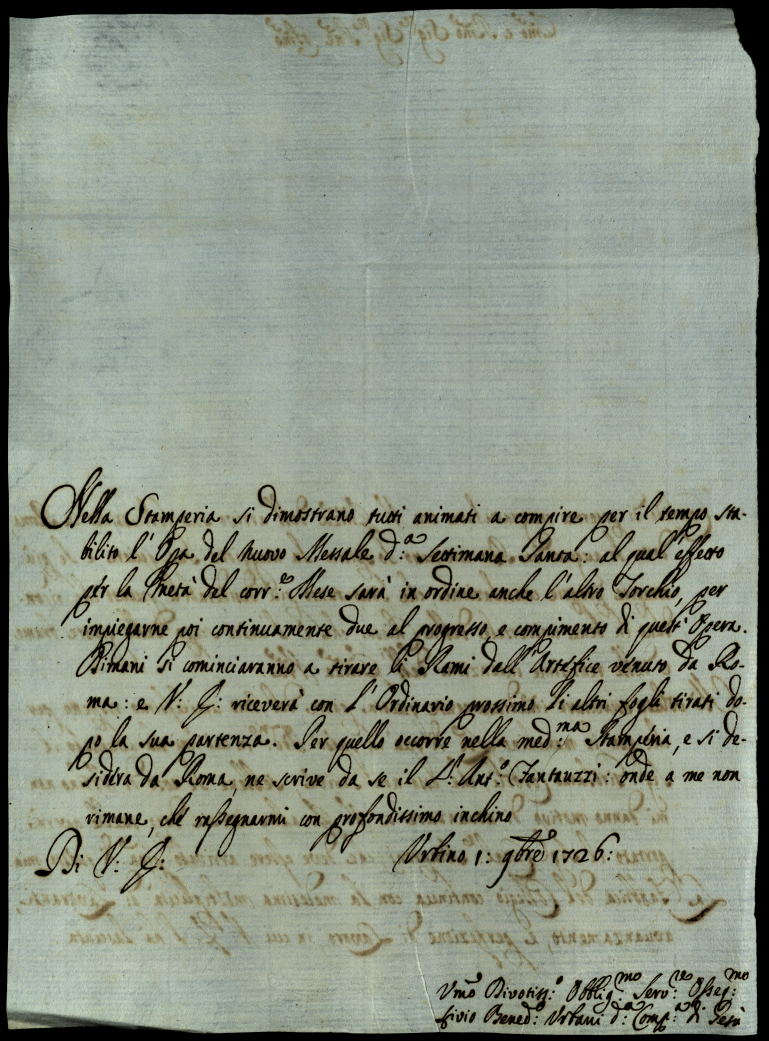 Nella Stamperia si dimostrano tutti animati a compire per il tempo sta-
bilito l'Opa del nuovo Messale d:ª Settimana Santa: al qual effetto
per la metà del corr:e Mese sarà in ordine anche l'altro Torchio, per
impiegarne poi continuamente due al progresso, e compimento di quest'Opera.
Dimani si cominciaranno a tirare li Rami dall'Artefice venuto da Ro-
ma: e V: S: riceverà con l'Ordinario prossimo li altri fogli tirati do-
po la sua partenza. Per quello occorre nella med:ma Stamperia, e si de-
sidera da Roma, ne scrive da se il S:r Ant:o Fantauzzi: onde a me non
rimane, che rassegnarmi con profondissimo inchino
Di V: S: Urbino 1: 9bre 1726:
Vmo Divotiss:o Obblig:mo Serv:re Osseq:mo
Livio Bened:o Urbani d:ª Comp:ª di Gesù